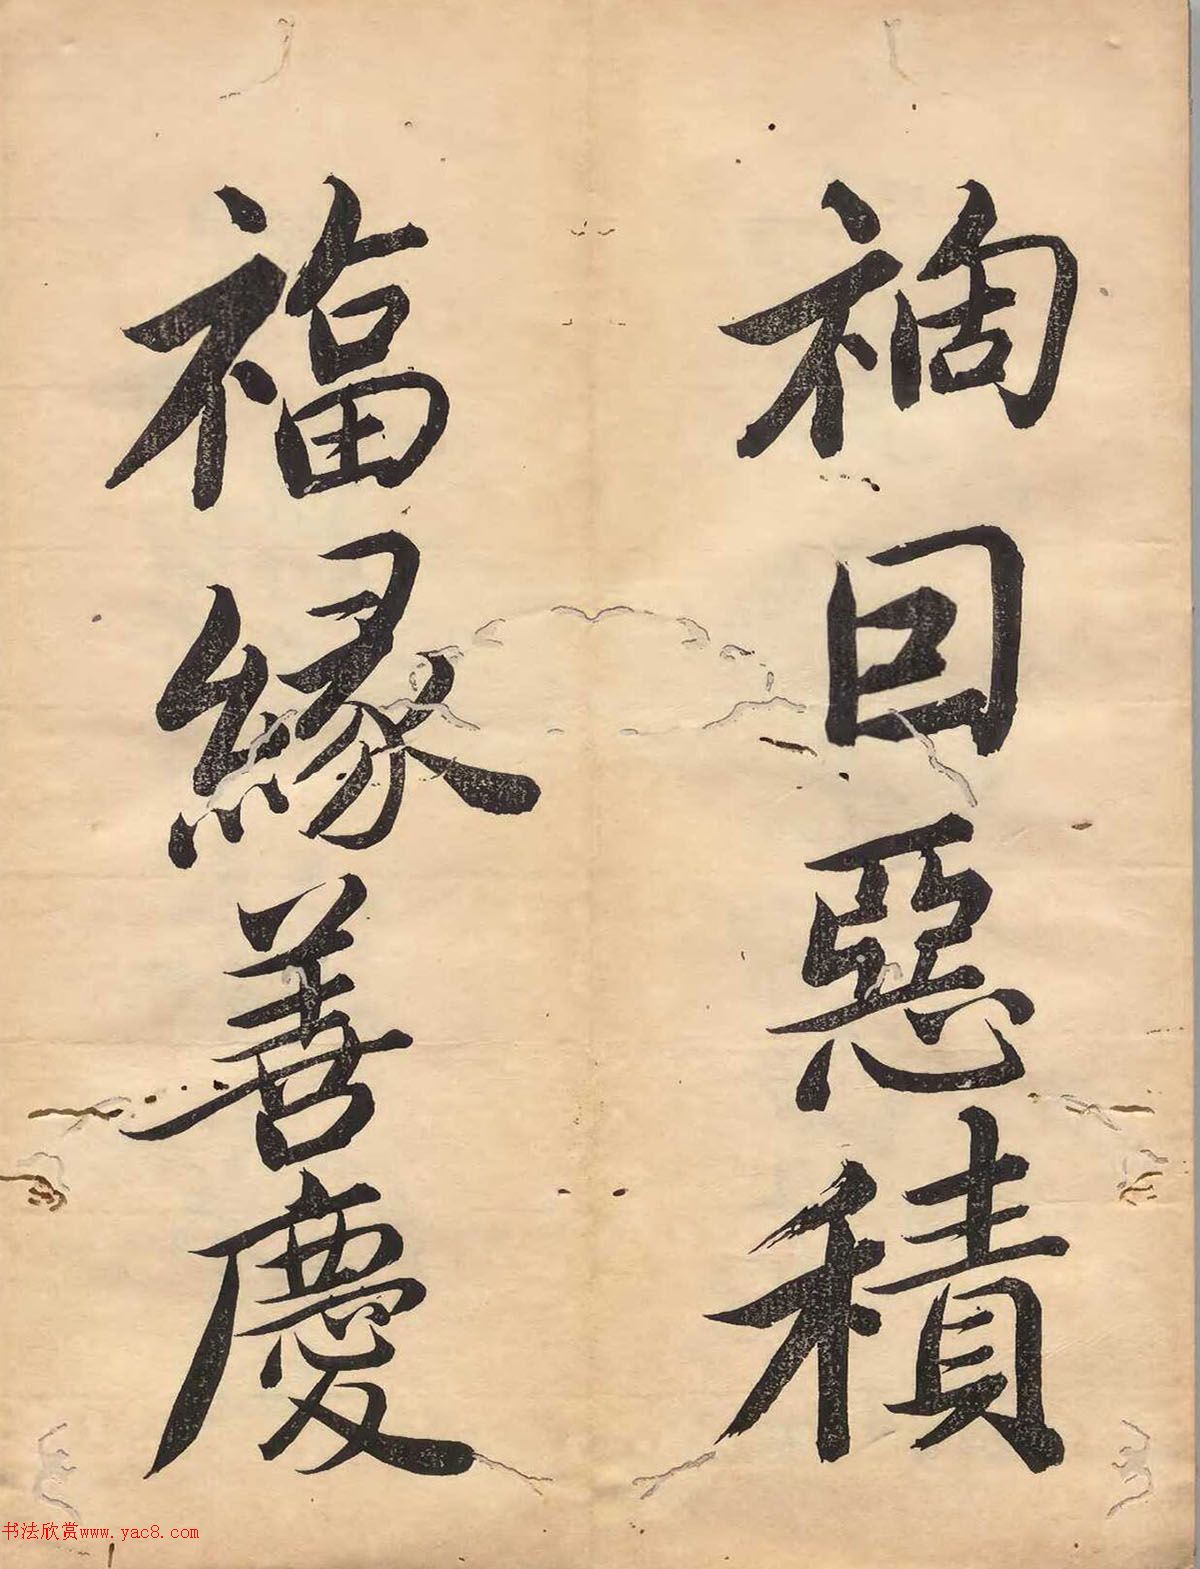 禍因惡積
福縁善慶
书法欣赏www.yac8.com